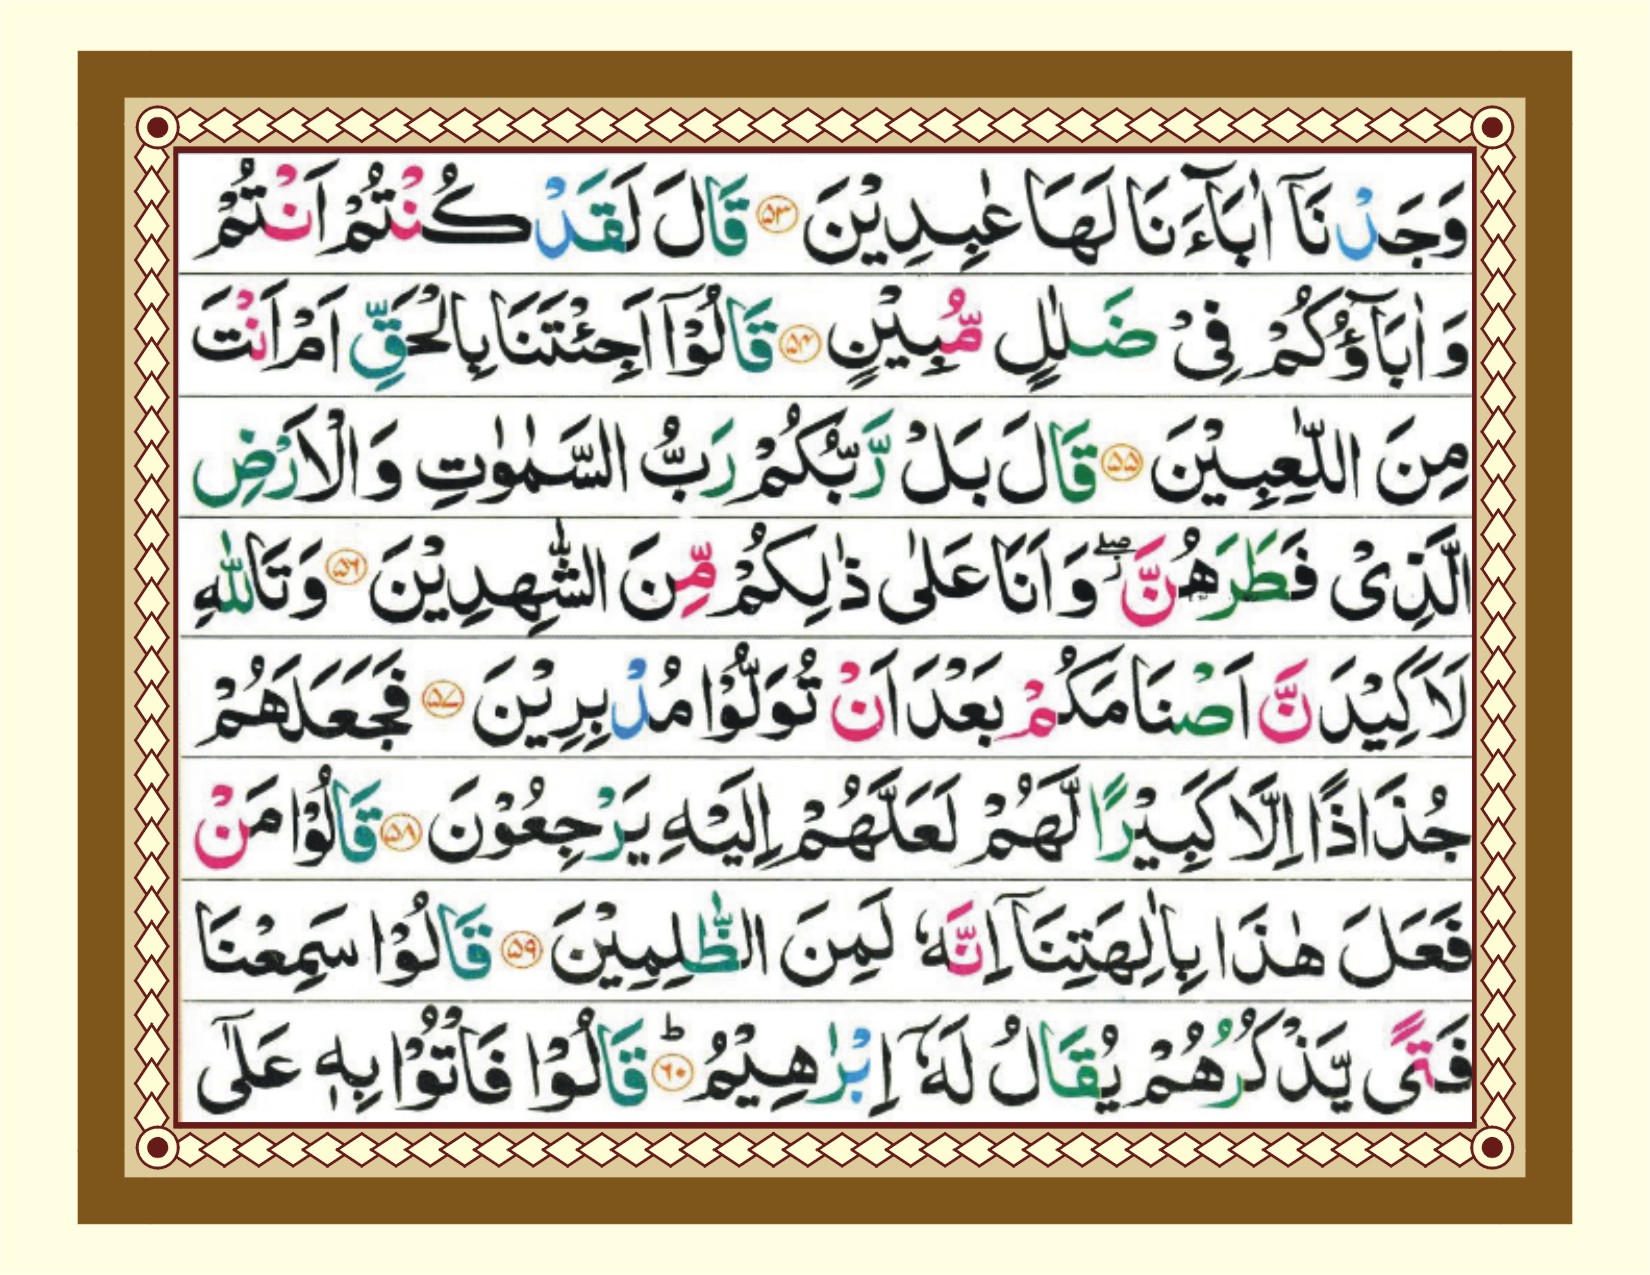 وَجَدْنَآ اٰبَآءَنَا لَهَا عٰبِدِيْنَ ۝۵۳ قَالَ لَقَدْ كُنْتُمْ اَنْتُمْ
وَ اٰبَآؤُكُمْ فِيْ ضَلٰلٍ مُّبِيْنٍ ۝۵۴ قَالُوْۤا اَجِئْتَنَا بِالْحَقِّ اَمْ اَنْتَ
مِنَ اللّٰعِبِيْنَ ۝۵۵ قَالَ بَلْ رَّبُّكُمْ رَبُّ السَّمٰوٰتِ وَ الْاَرْضِ
الَّذِيْ فَطَرَهُنَّ ۖ وَ اَنَا عَلٰى ذٰلِكُمْ مِّنَ الشّٰهِدِيْنَ ۝۵۶ وَ تَاللّٰهِ
لَاَكِيْدَنَّ اَصْنَامَكُمْ بَعْدَ اَنْ تُوَلُّوْا مُدْبِرِيْنَ ۝۵۷ فَجَعَلَهُمْ
جُذَاذًا اِلَّا كَبِيْرًا لَّهُمْ لَعَلَّهُمْ اِلَيْهِ يَرْجِعُوْنَ ۝۵۸ قَالُوْا مَنْ
فَعَلَ هٰذَا بِاٰلِهَتِنَاۤ اِنَّهٗ لَمِنَ الظّٰلِمِيْنَ ۝۵۹ قَالُوْا سَمِعْنَا
فَتًى يَّذْكُرُهُمْ يُقَالُ لَهٗۤ اِبْرٰهِيْمُ ؕ۝۶۰ قَالُوْا فَاْتُوْا بِهٖ عَلٰۤى